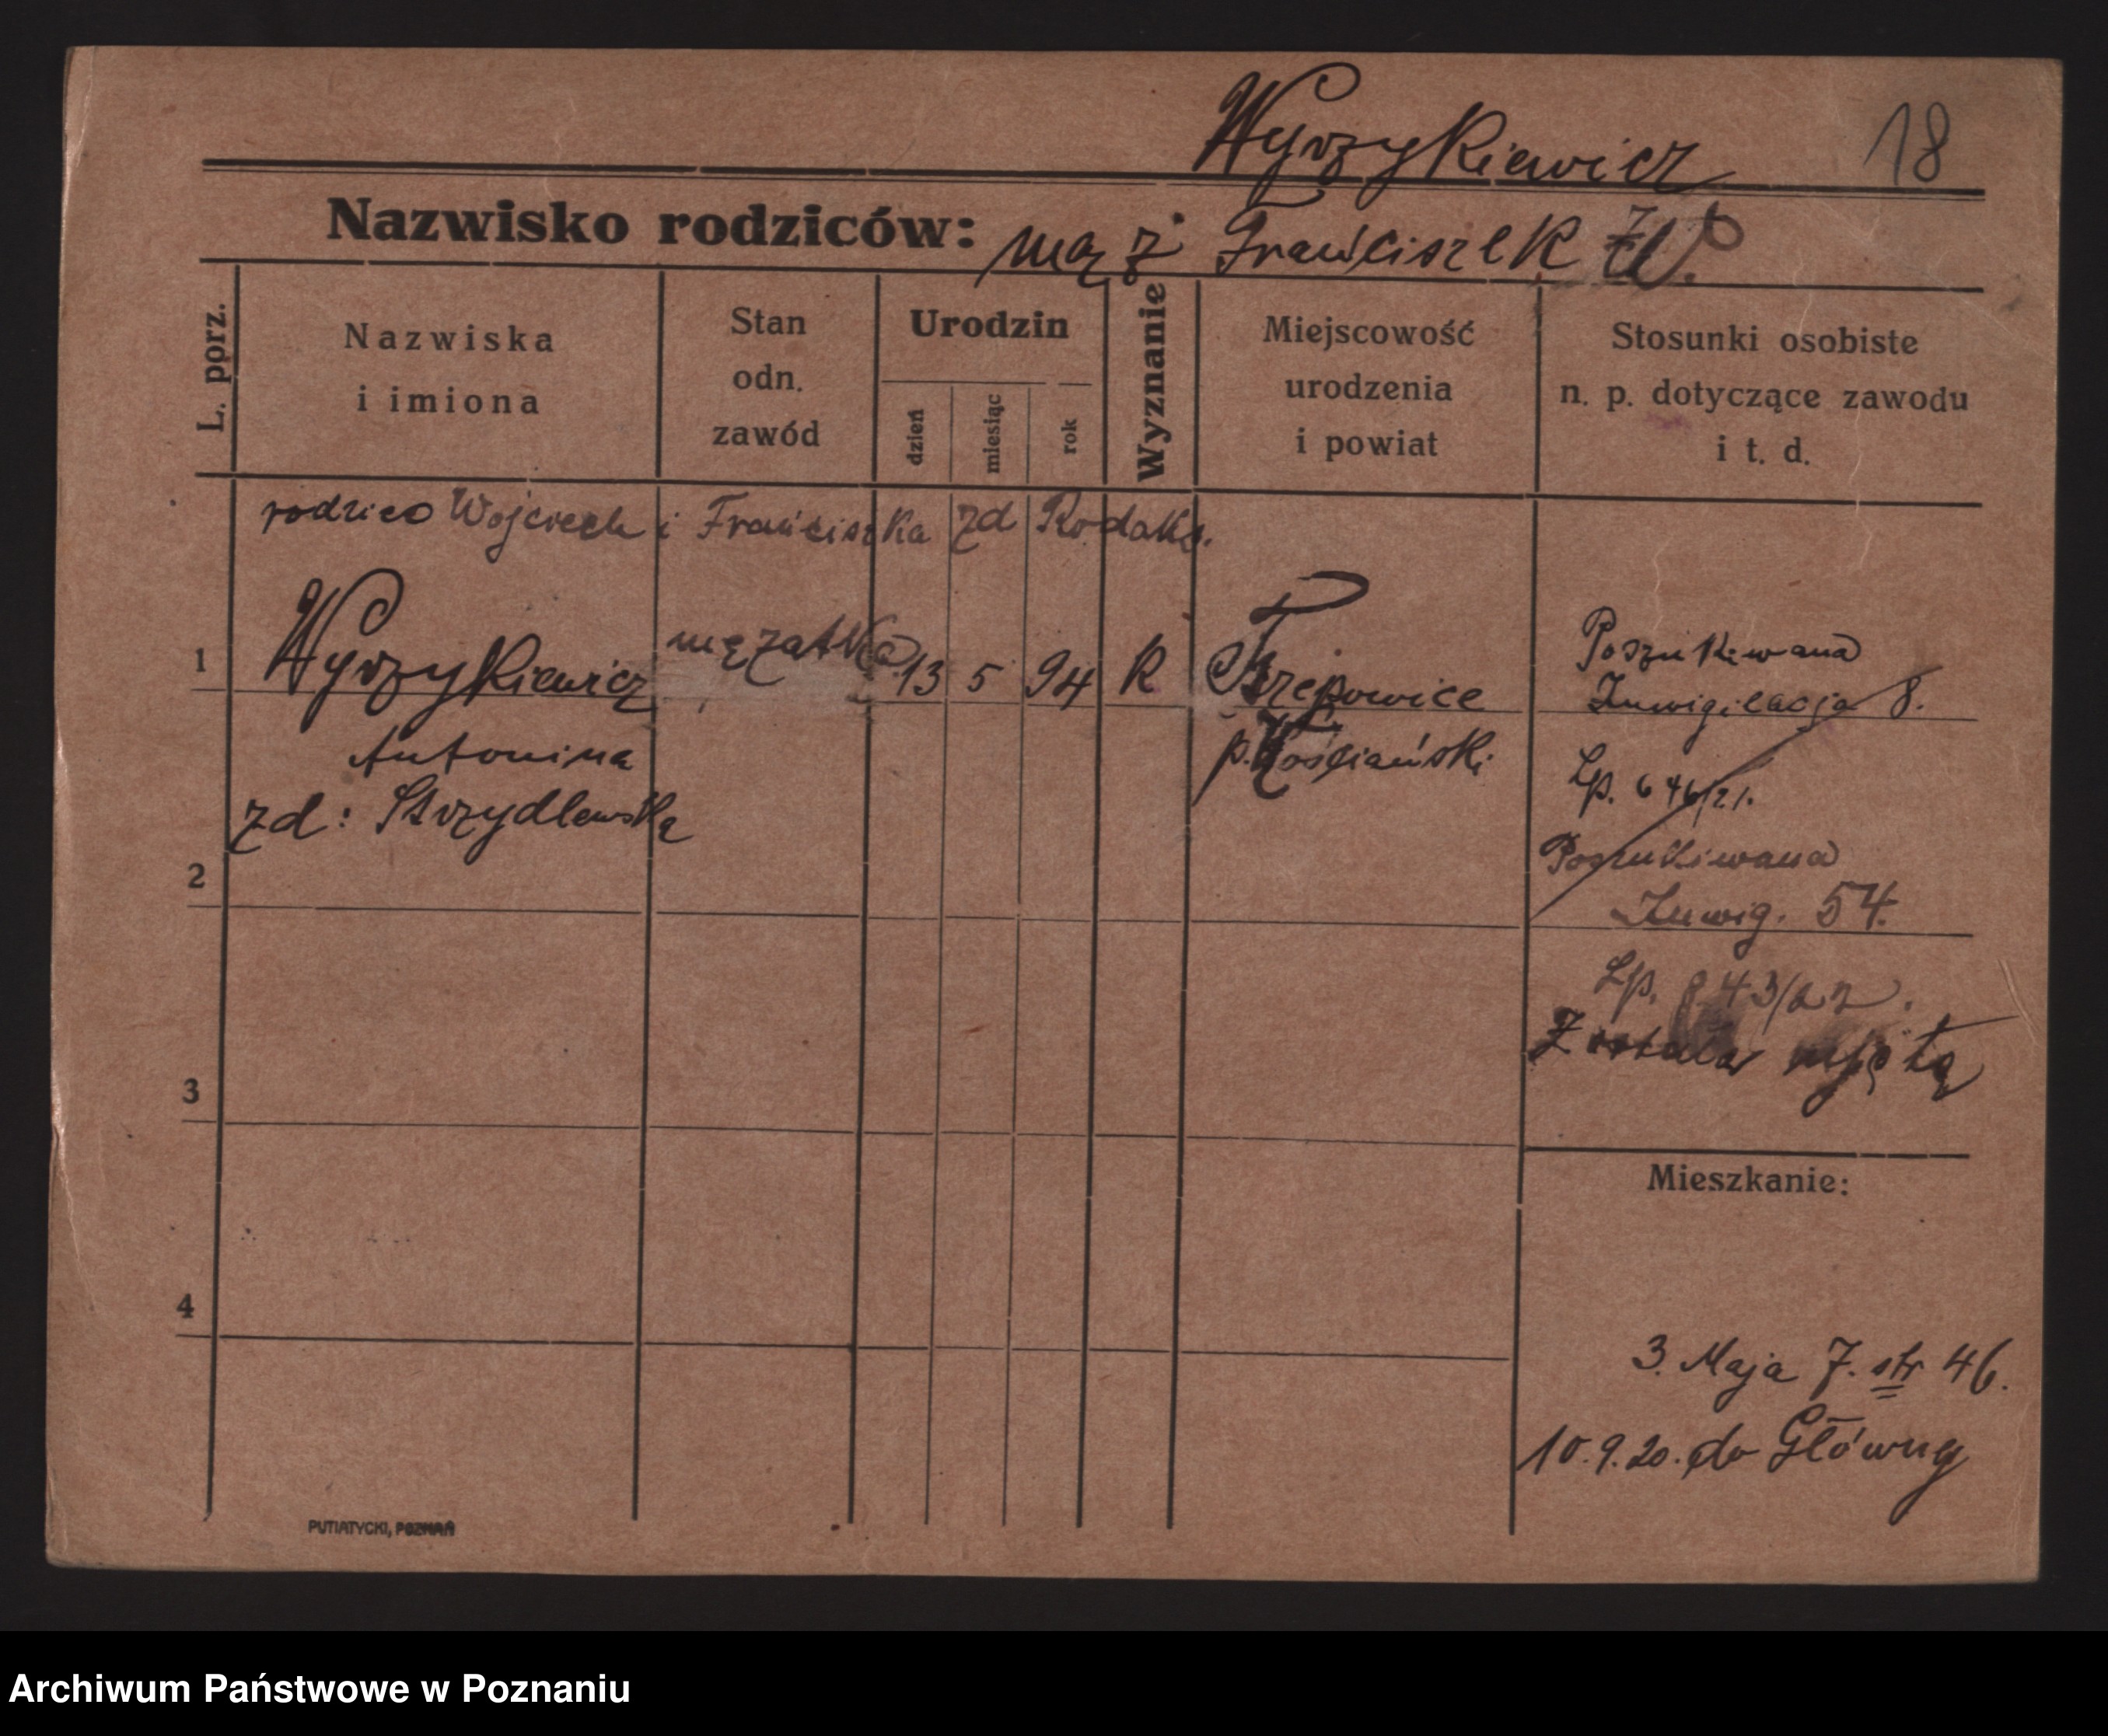 Wyrzykiewicz 18
Nazwisko rodziców: mąż Franciszek W.
L. porz.
Nazwiska
i imiona
Stan
odn.
zawód
Urodzin
dzień
miesiąc
rok
Wyznanie
Miejscowość
urodzenia
i powiat
Stosunki osobiste
n. p. dotyczące zawodu
i t. d.
rodzice Wojciech i Franciszka zd Rodaks.
1 Wyrzykiewicz mężatka 13 5 94 R
Antonina p. Kościański
zd: Strzydlewska
Poszukiwana
Inwigilacja 8.
Lp. 646/21.
2 Poszukiwana
Inwig. 54.
Lp. 843/22.
Została ujęta
3
Mieszkanie:
4
3. Maja 7. str 46.
10.9.20. do Główny
PUTIATYCKI, POZNAŃ
Archiwum Państwowe w Poznaniu